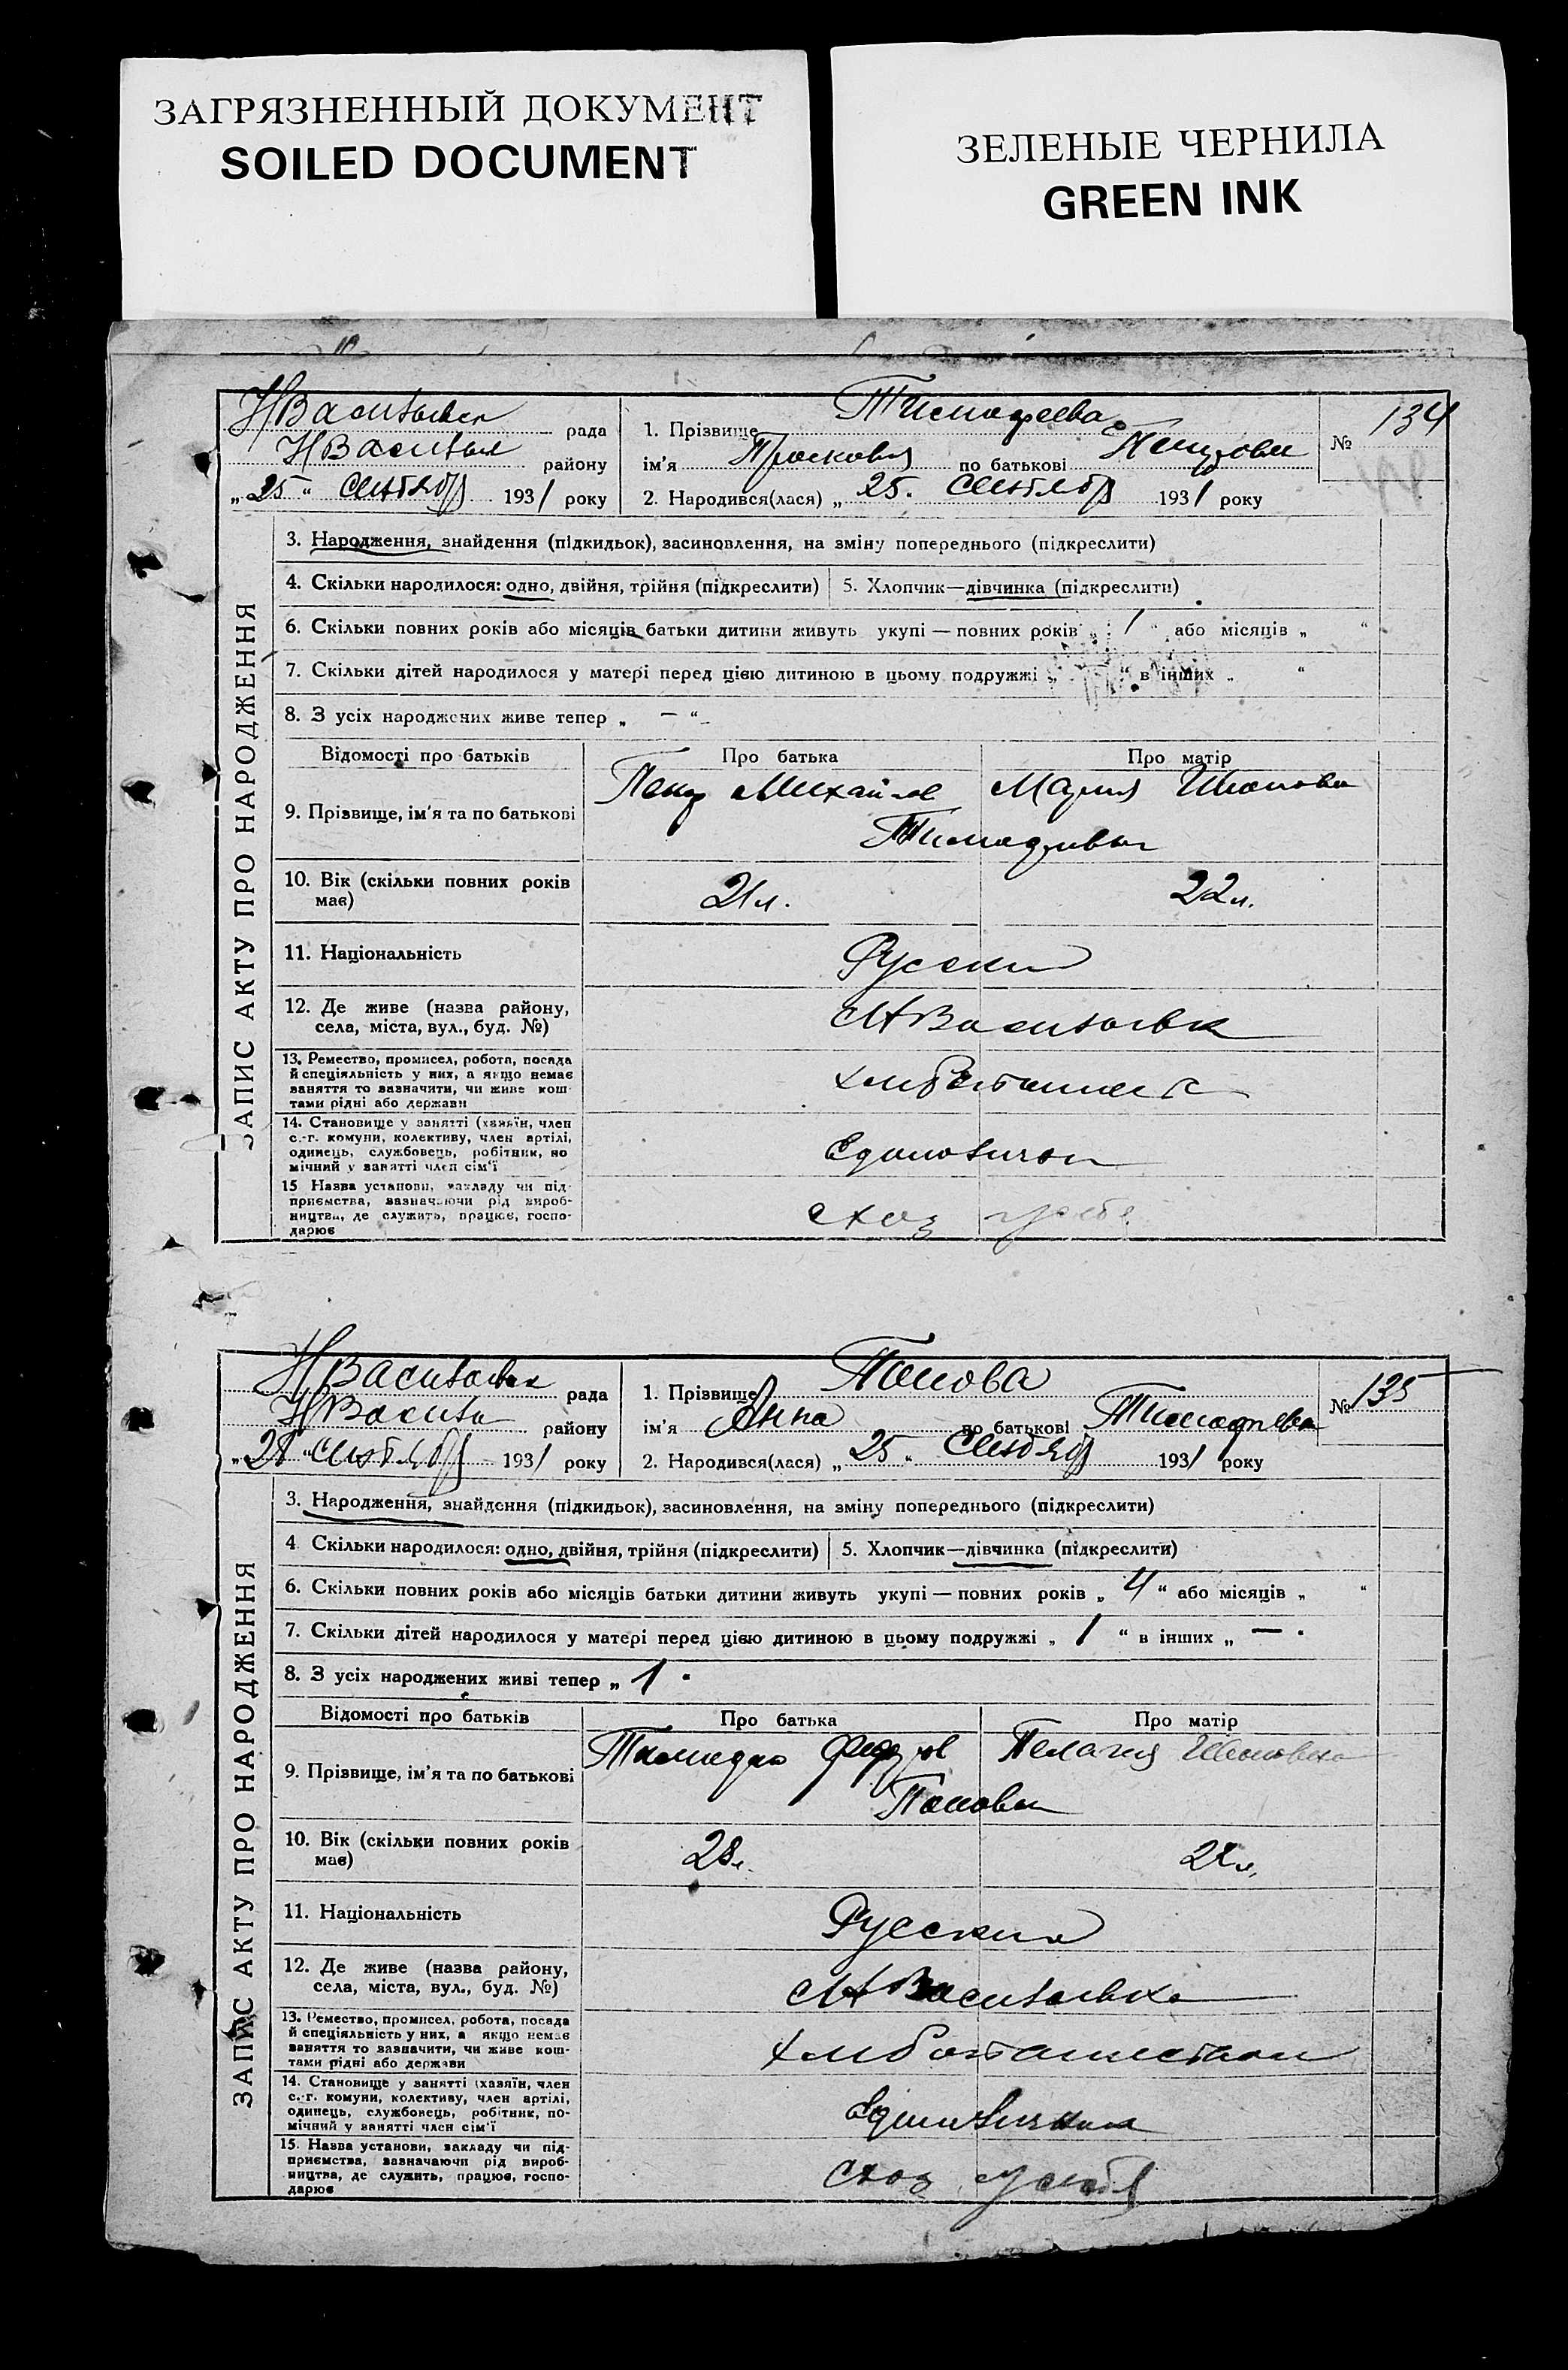 ЗАГРЯЗНЕННЫЙ ДОКУМЕНТ
SOILED DOCUMENT
ЗЕЛЕНЫЕ ЧЕРНИЛА
GREEN INK
ЗАПИС АКТУ ПРО НАРОДЖЕННЯ
рада
району
„25“ 1931 року
1. Прізвище Тимофеева
ім'я Прасковья по батькові Петровн
2. Народився(лася) „25. 1931 року
№ 134
3. Народження, знайдення (підкидьок), засиновлення, на зміну попереднього (підкреслити)
4. Скільки народилося: одно, двійня, трійня (підкреслити) 5. Хлопчик—дівчинка (підкреслити)
6. Скільки повних років або місяців батьки дитини живуть укупі — повних років „ 1 “ або місяців „ “
7. Скільки дітей народилося у матері перед цією дитиною в цьому подружжі „ “ в інших „ “
8. З усіх народжених живе тепер „ — “
Відомості про батьків Про батька Про матір
9. Прізвище, ім'я та по батькові Петр Михайлов Мария Иванова
10. Вік (скільки повних років має) 21л. 22л.
11. Національність Русские
12. Де живе (назва району, села, міста, вул., буд. №)
13. Ремество, промисел, робота, посада
й спеціяльність у них, а якщо немає
заняття то зазначити, чи живе кош-
тами рідні або держави
14. Становище у занятті (хазяїн, член
с.-г. комуни, колективу, член артілі,
одинець, службовець, робітник, по
мічний у занятті член сім'ї
15 Назва установи, закладу чи під-
приємства, зазначаючи рід вироб-
ництва, де служить, працює, госпо-
дарює
ЗАПИС АКТУ ПРО НАРОДЖЕННЯ
рада
району
„28“ 1931 року
1. Прізвище Попова
ім'я Анна по батькові Тимофеевн
2. Народився(лася) „25“ 1931 року
№ 135
3. Народження, знайдення (підкидьок), засиновлення, на зміну попереднього (підкреслити)
4 Скільки народилося: одно, двійня, трійня (підкреслити) 5. Хлопчик—дівчинка (підкреслити)
6. Скільки повних років або місяців батьки дитини живуть укупі — повних років „ 4 “ або місяців „ “
7. Скільки дітей народилося у матері перед цією дитиною в цьому подружжі „ 1 “ в інших „ —
8. З усіх народжених живі тепер „ 1
Відомості про батьків Про батька Про матір
9. Прізвище, ім'я та по батькові Пелагия Ивановна
Поповы
10. Вік (скільки повних років має) 28л.
11. Національність Русские
12. Де живе (назва району, села, міста, вул., буд. №)
13. Ремество, промисел, робота, посада
й спеціяльність у них, а якщо немає
заняття то зазначити, чи живе кош-
тами рідні або держави
14. Становище у занятті (хазяїн, член
с.-г. комуни, колективу, член артілі,
одинець, службовець, робітник, по-
мічний у занятті член сім'ї
15. Назва установи, закладу чи під-
приємства, зазначаючи рід вироб-
ництва, де служить, працює, госпо-
дарює